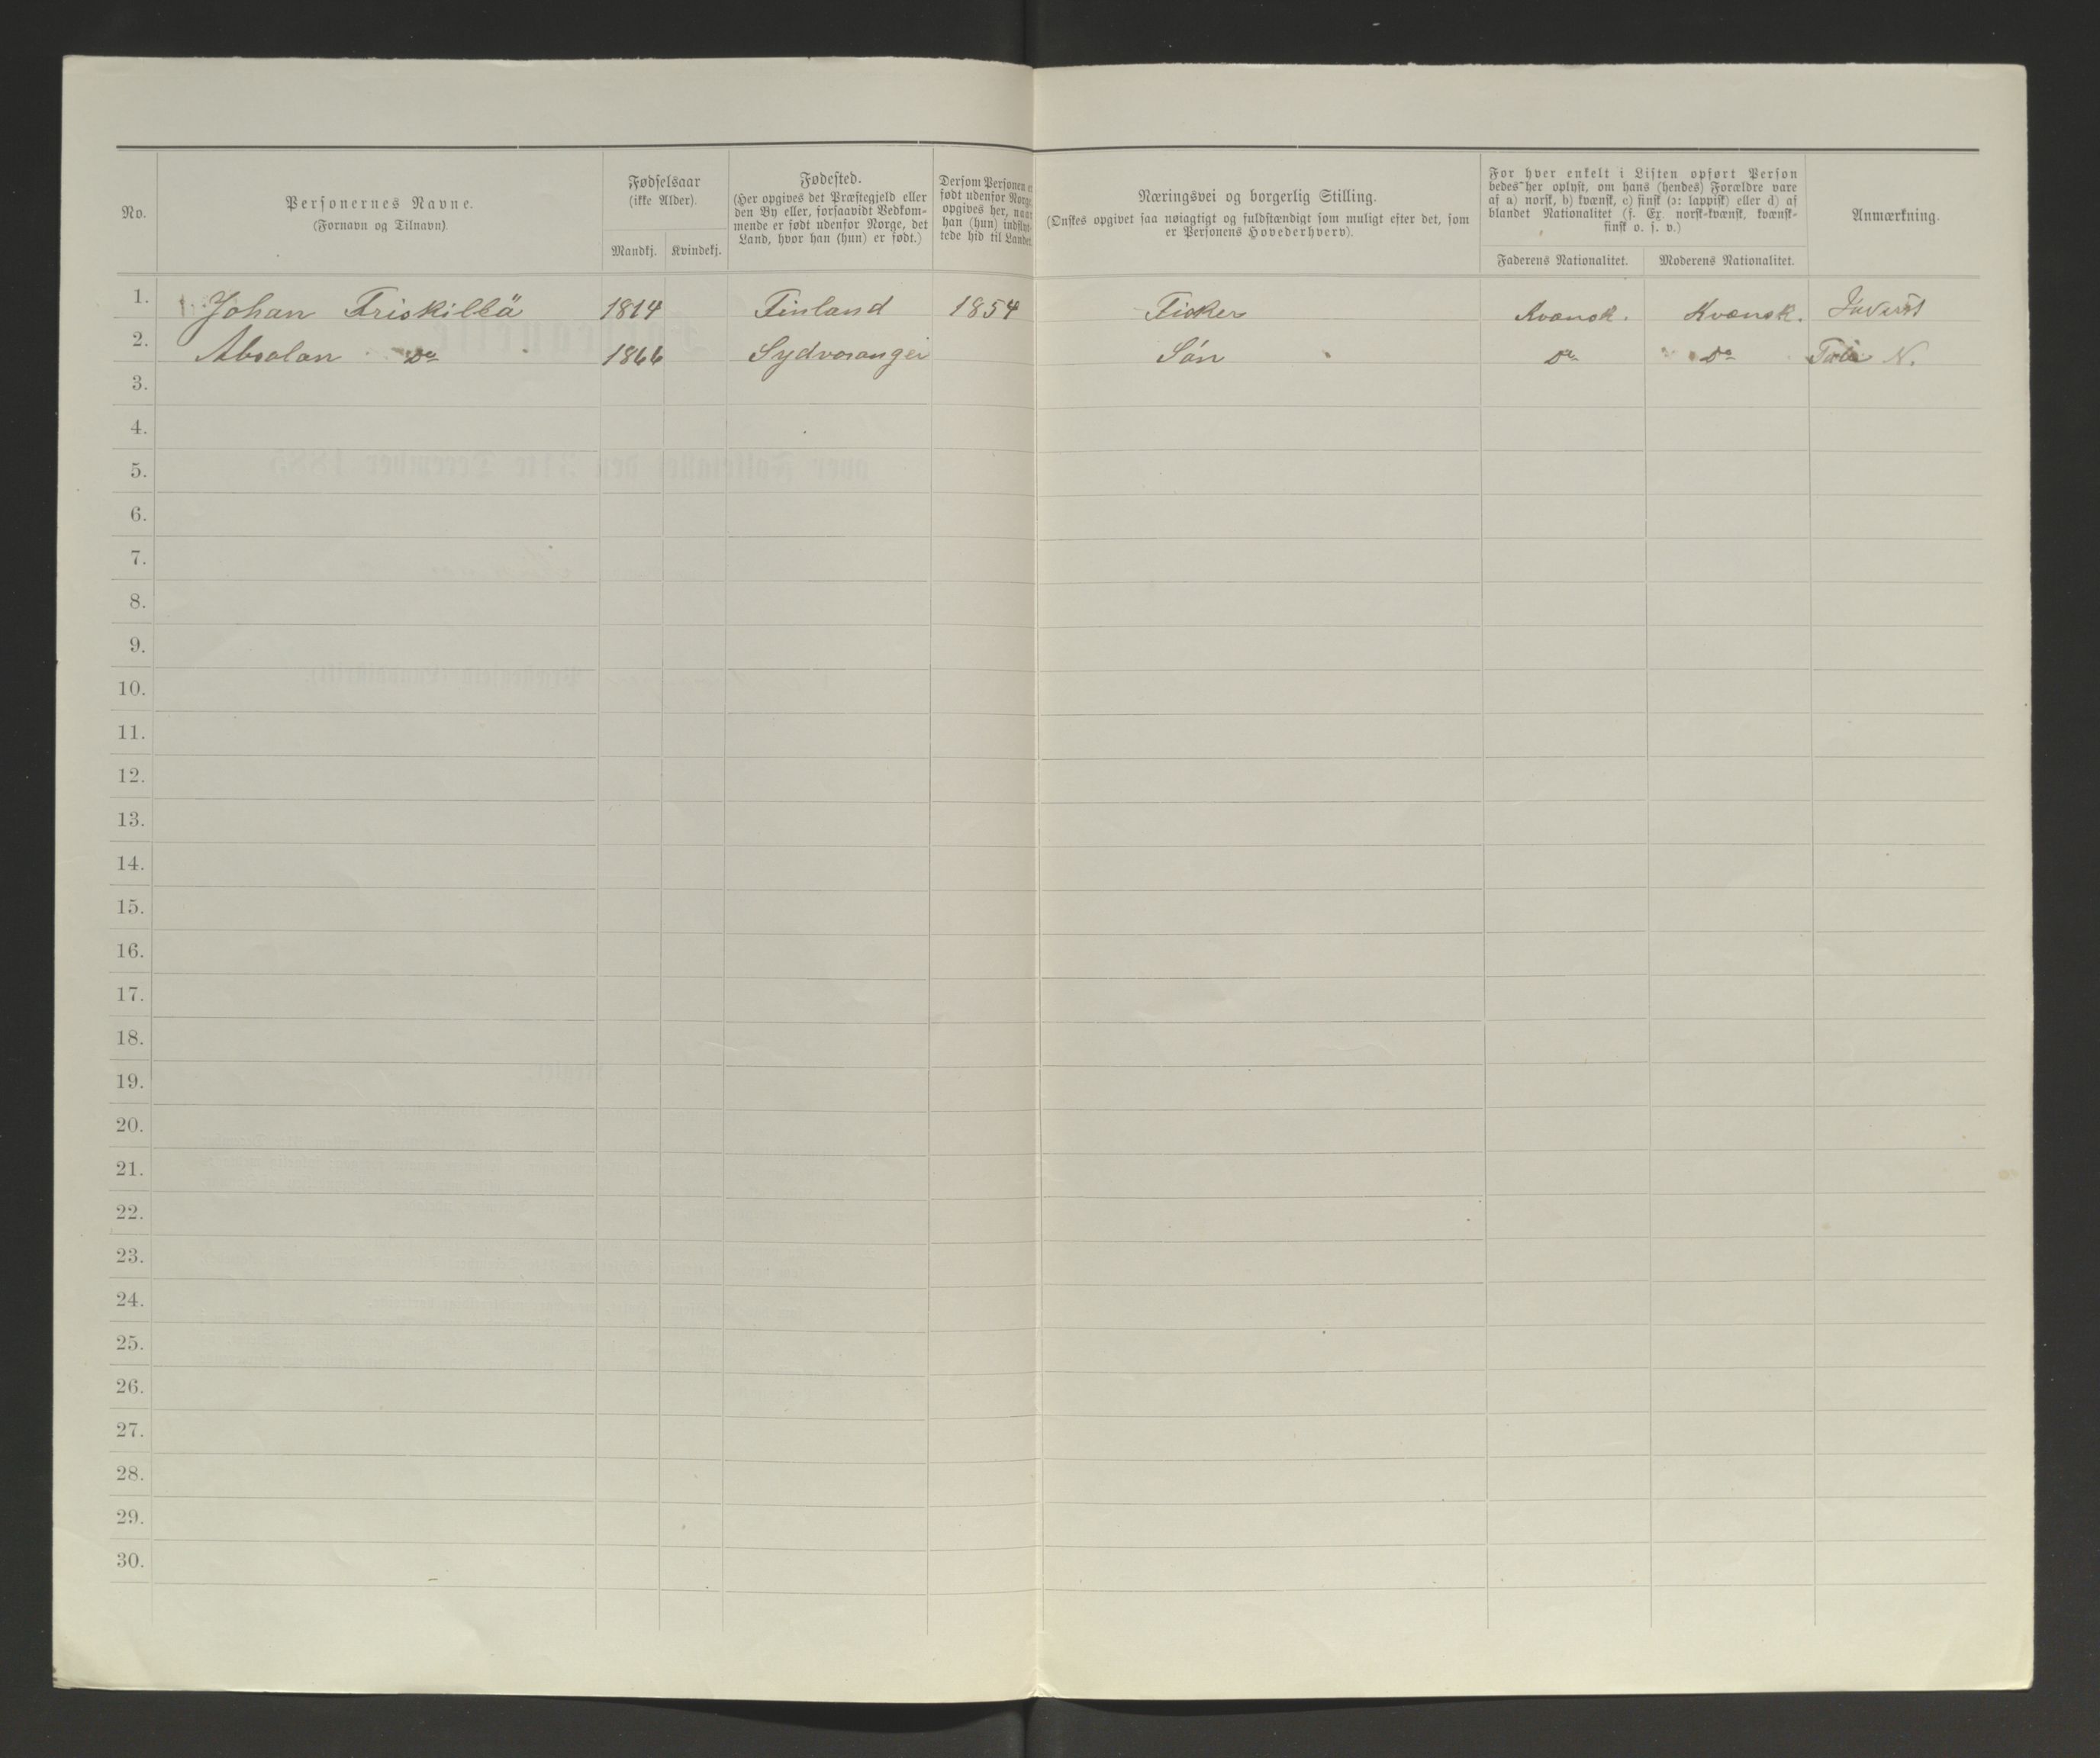 No.
Personernes Navne.
(Fornavn og Tilnavn).
Fødselsaar
(ikke Alder).
Mandkj. Kvindekj.
Fødested.
(Her opgives det Præstegjeld eller
den By eller, forsaavidt Vedkom-
mende er født udenfor Norge, det
Land, hvor han (hun) er født.)
Dersom Personen er
født udenfor Norge,
opgives her, naar
han (hun) indflyt-
tede hid til Landet
Næringsvei og borgerlig Stilling.
(Ønskes opgivet saa nøiagtigt og fuldstændigt som muligt efter det, som
er Personens Hovederhverv).
For hver enkelt i Listen opført Person
bedes her oplyst, om hans (hendes) Forældre vare
af a) norsk, b) kvænsk, c) finsk (ɔ: lappisk) eller d) af
blandet Nationalitet (f. Ex. norsk-kvænsk, kvænsk-
finsk o. s. v.)
Faderens Nationalitet. Moderens Nationalitet.
Anmærkning.
1. Johan Friskillä 1814 Finland 1854 Fisker Kvænsk. Kvænsk.
2. Absalan Do 1866 Sydvaranger Søn Do Do N.
3.
4.
5.
6.
7.
8.
9.
10.
11.
12.
13.
14.
15.
16.
17.
18.
19.
20.
21.
22.
23.
24.
25.
26.
27.
28.
29.
30.